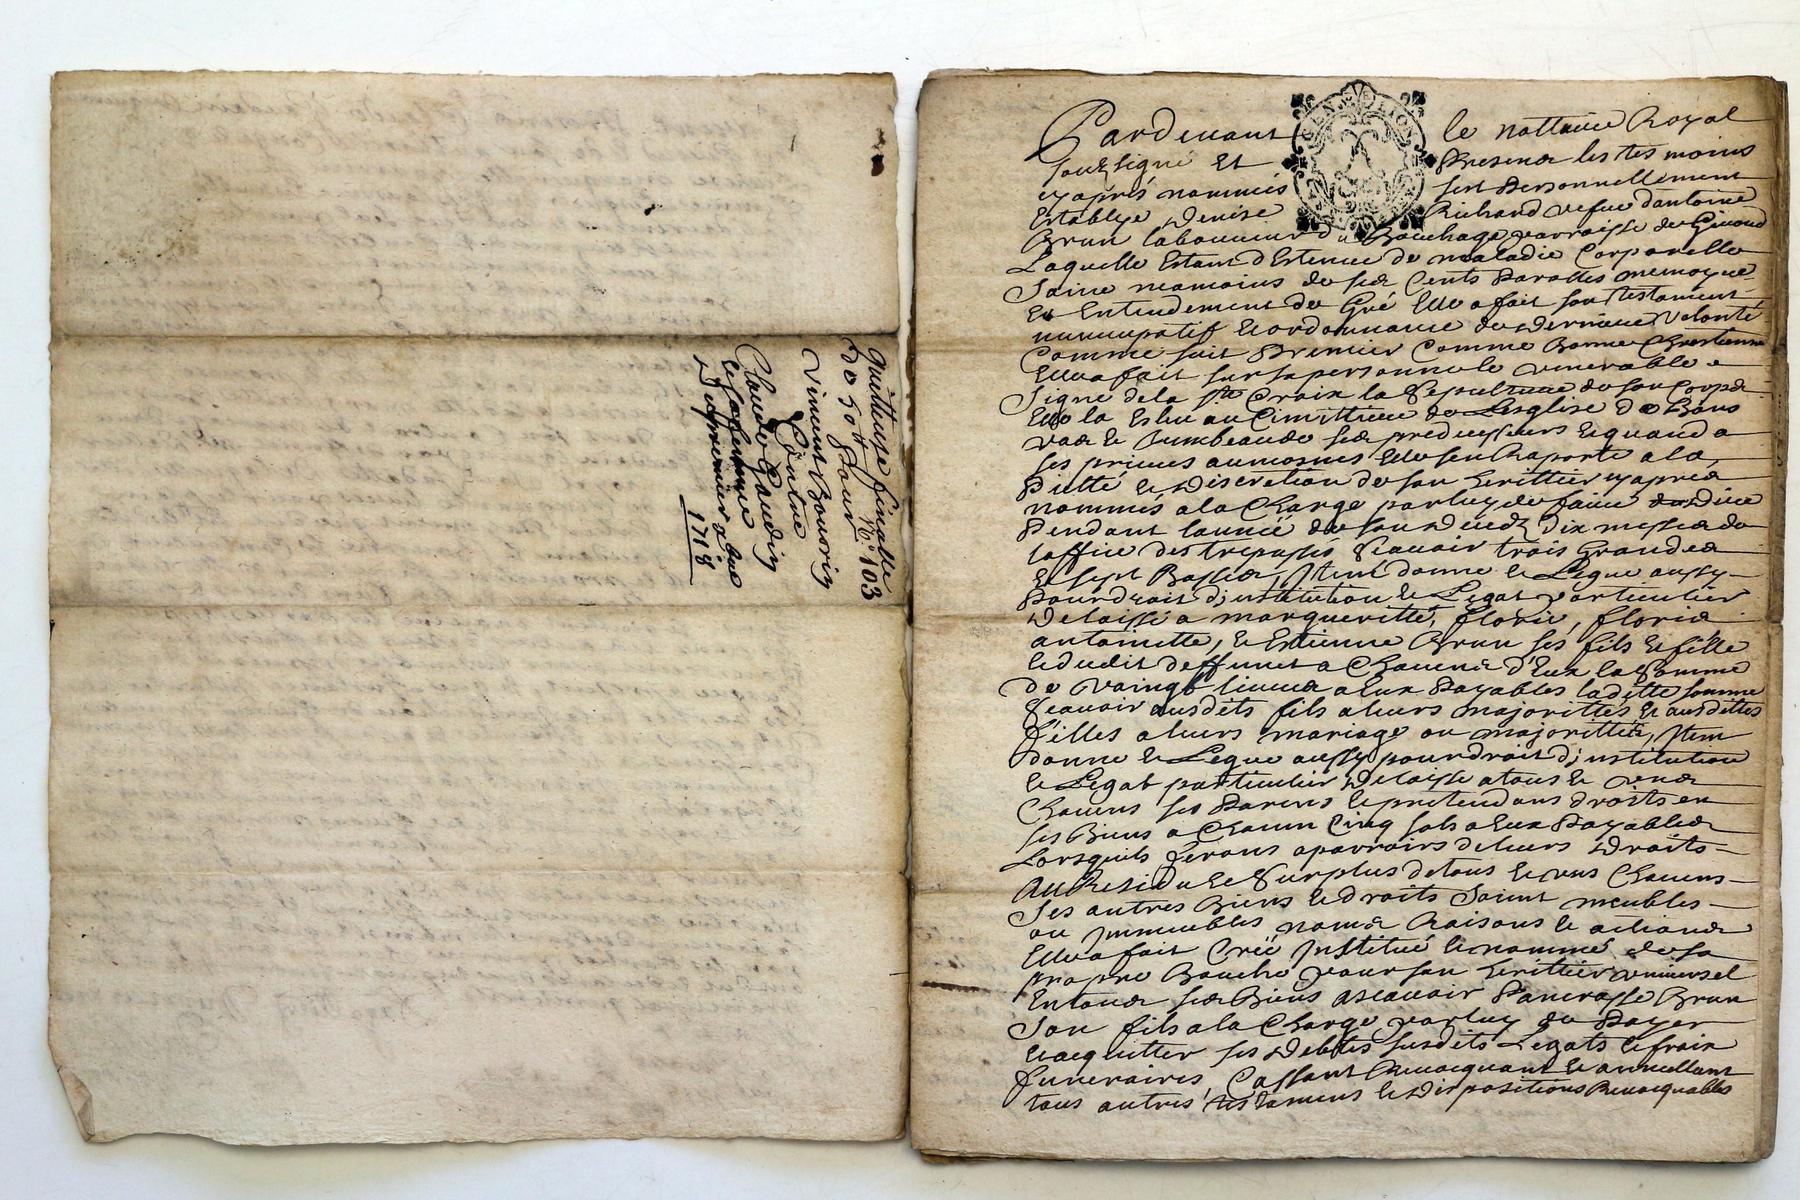 quittance finalle
N° 103
de 50tt pour
Vincent Bonorin
Contre
Claude Gaudin
et sa femme
Du premier xbre
1718
GEN DE LION
Pardevant le nottaire Royal
souzsigné Et Presence les tesmoins
cyaprés nommés sest Personnellement
Establye Denise Richard vefue dantoine
Brun laboureur du Bouchage parroisse de
Laquelle Estant dEtenue de maladie Corporelle
Saine neamoins de ses Cents Parolles memoyre
Et Entendement de Gré Elle a fait son testament
nuncupatif Et ordonnance de Derniere Volonté
Comme suit Premier Comme Bonne Chrestienne
Elle a fait sur sa personne le venerable
Signe de la ste Croix la sepulture de son Corps
Elle la Eslu au Cimittiere de Lesglise de
vas le tumbeau de ses predecesseurs Et quand a
ses prieres aumosnes Elle sen Raporte a la
Pietté Et Discretion de son herittier cyapres
nommés a la Charge par luy de faire Dire
Pendant lannée de son decedz Dix messes de
loffice des trepassés scauoir trois Grandes
Et sept Basses, Item donne Et Legue aussy
Pour droit dinstitution Et Legat particulier
Delaisse a marguerite, florie, florie
antoinette, Et Estienne Brun ses fils Et fille
Et dudit deffunct a Chacune d'Eux la somme
de vaingt liures a Eux Payables ladette somme
scauoir ausdits fils a leurs majorittés Et ausdittes
filles a leurs mariage ou majorittés, Item
donne Et Legue aussy pour droit dinstitution
Et Legat particulier Delaisse a tous Et vngs
Chacuns ses Parens Et pretendans droits en
ses Biens a Chacun Cinq sols a Eux Payables
Lorsquils feront aparroir de leurs Droits
Au Residu Et Surplus de tous Et vns Chacuns
Ses autres Biens Et droits Soient meubles
ou immeubles noms Raisons Et actions
Elle a fait Creé Institué Et nommé de sa
propre Bouche pour son herittier vniversel
En tous ses Biens ascauoir Pancrasse Brun
Son fils a la Charge par luy de Payer
Et acquitter ses Debtes susdits Legats Et frais
funeraires, Cassant Reuocquant Et annullant
tous autres testamens Et Dispositions Reuocquables